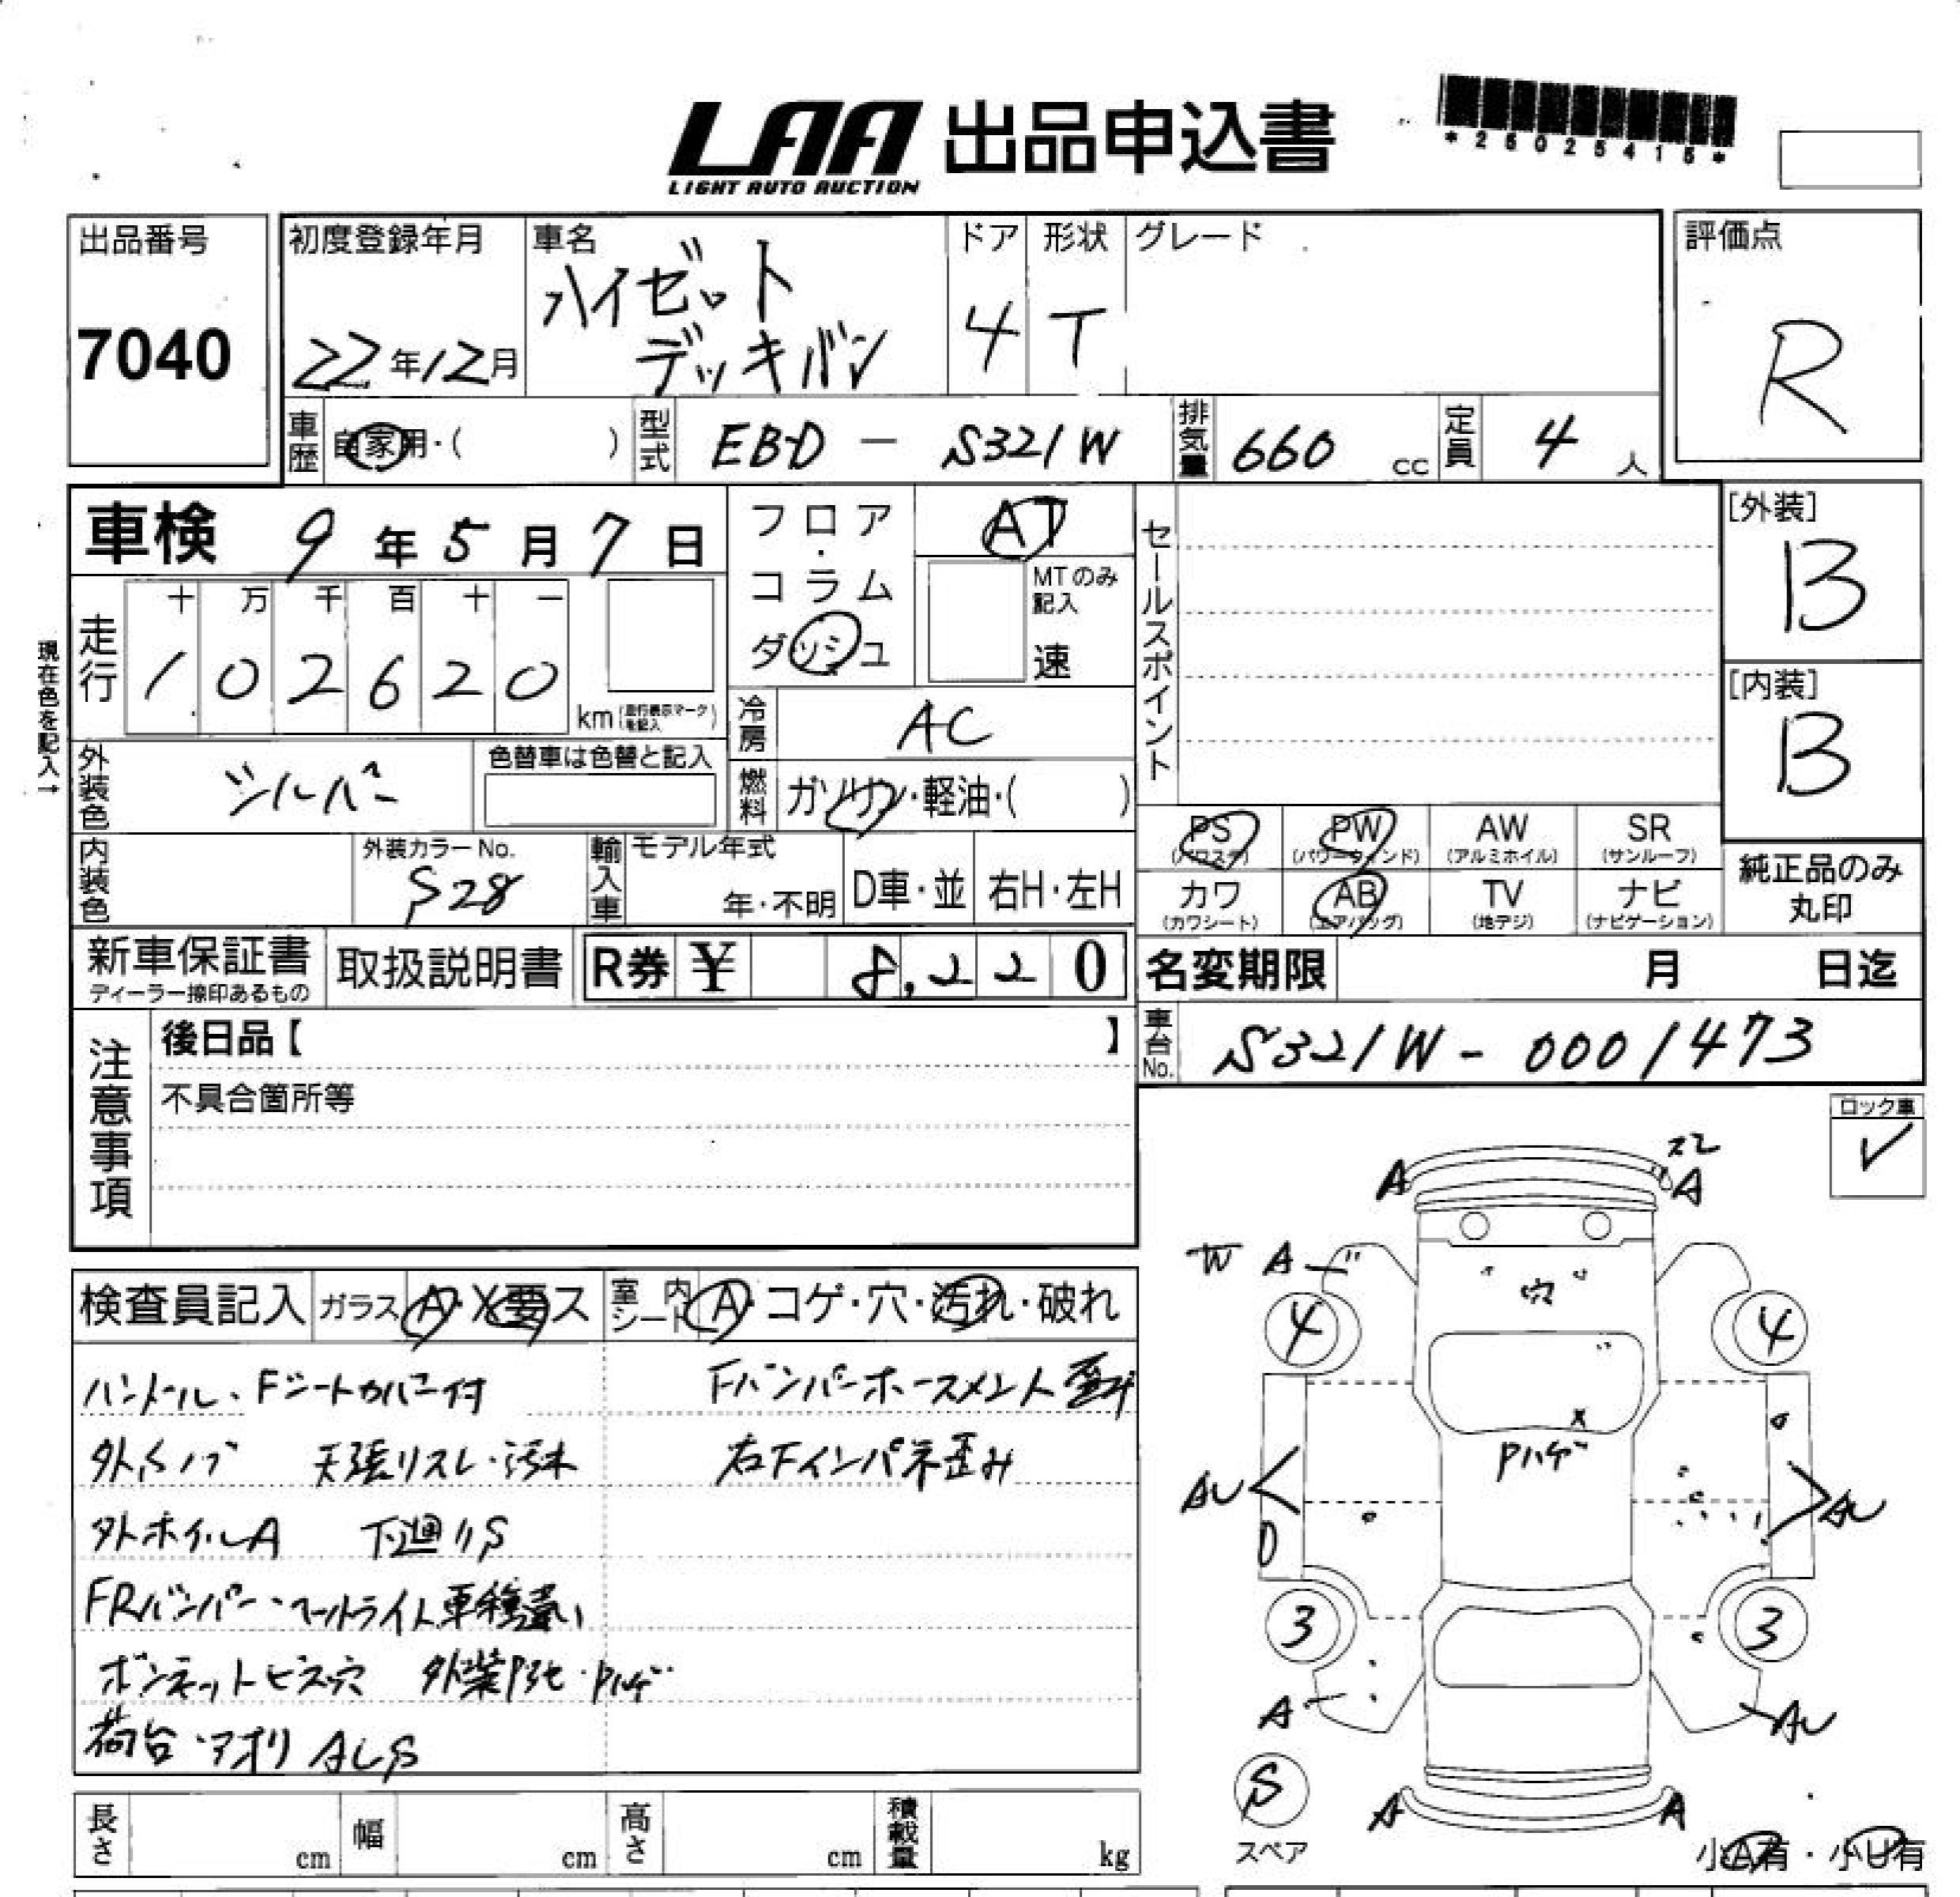 LAA 出品申込書
LIGHT AUTO AUCTION
*26025415*
出品番号
7040
初度登録年月
22年12月
車名
ハイゼット
デッキバン
ドア
4
形状
T
グレード
評価点
R
車歴 自家用・( )
型式 EBD － S321W
排気量 660 cc
定員 4 人
車検 9年5月7日
フロア・コラム
ダッシュ
AT
MTのみ記入
速
セールスポイント
[外装]
B
[内装]
B
現在色を記入→
走行
十 万 千 百 十 一
1 0 2 6 2 0
km (走行表示マークを記入)
冷房 AC
外装色 シルバー
色替車は色替と記入
燃料 ガソリン・軽油・( )
内装色
外装カラーNo.
S28
輸入車
モデル年式
年・不明
D車・並
右H・左H
PS PW AW SR
(パワステ) (パワーウィンド) (アルミホイル) (サンルーフ)
カワ AB TV ナビ
(カワシート) (エアバッグ) (地デジ) (ナビゲーション)
純正品のみ
丸印
新車保証書
ディーラー捺印あるもの
取扱説明書
R券 ¥ 8,220
名変期限 月 日迄
車台No. S321W - 0001473
注意事項
後日品【 】
不具合箇所等
ロック車
✓
検査員記入 ガラス A・X要ス 室内シート A・コゲ・穴・汚れ・破れ
ハンドル、Fシートカバー付 Fバンパーホースメント歪み
天張リスレ・汚れ 右Fインパネ歪み
外ホイルA 下廻りS
FRバンパー・ヘッドライト車種違い
ボンネットビス穴 外装 Pハゲ
荷台・アオリ A L S
スレ
A A
W A
穴
4 4
Pハゲ
X
AU AU
3 3
A AU
S
スペア
A A
小A有・小U有
長さ cm 幅 cm 高さ cm 積載量 kg